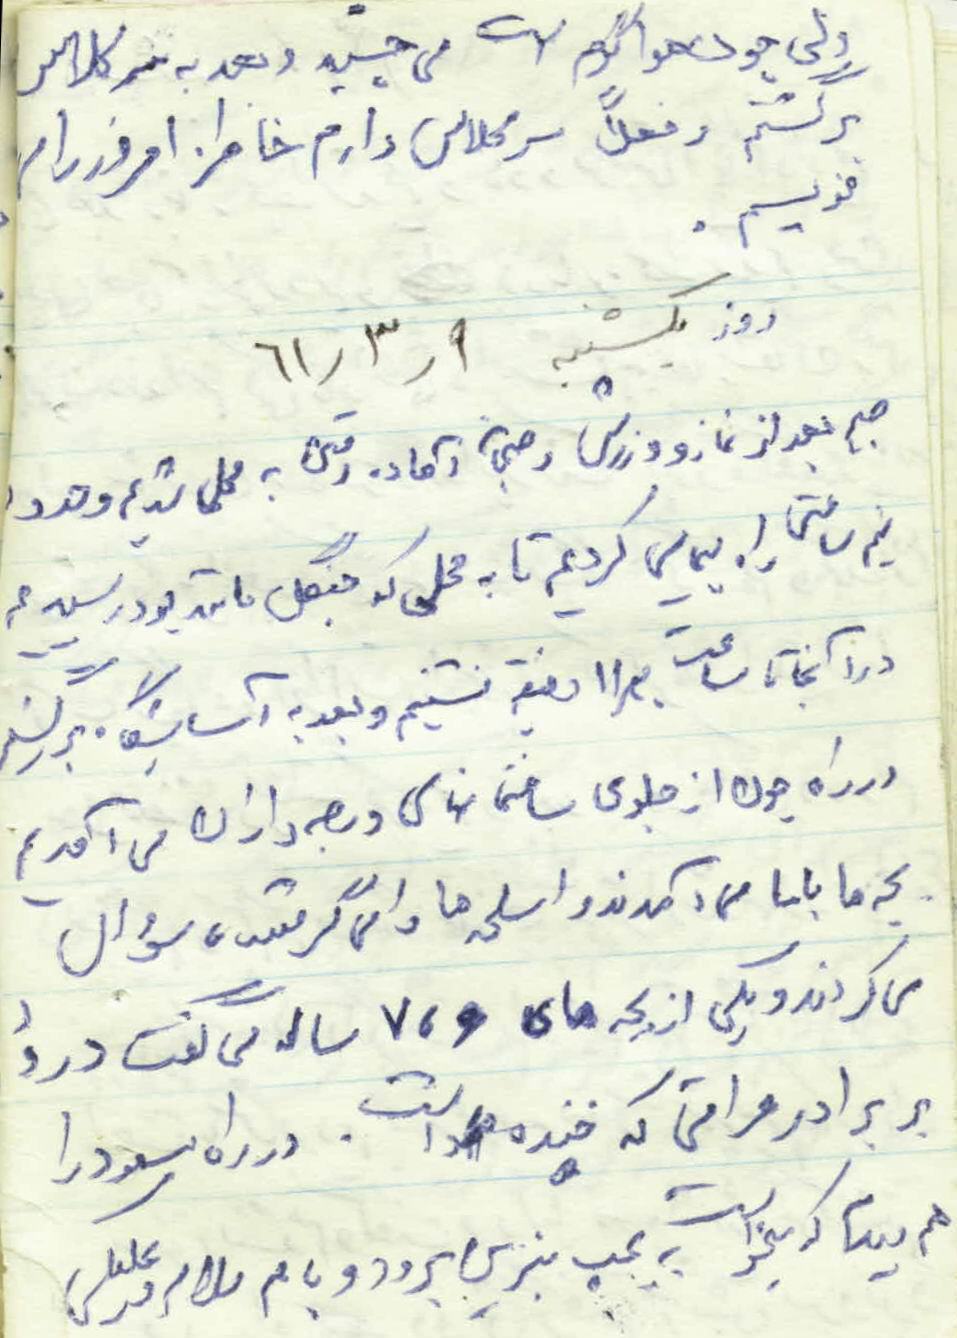 ولی چون هوا گرم است می چسبید و بعد به سر کلاس
برگشتم و فعلاً سر کلاس دارم خاطرات امروز را می
نویسم .
روز یکشنبه ۶۱/۳/۹
صبح بعد از نماز و ورزش و صبحانه آماده رفتن به محلی شدیم و حدود
نیم ساعتی راه پیمایی کردیم تا به محلی که جنگل مانند بود رسیدیم
در آنجا تا ساعت دقیقه نشستیم و بعد به آسایشگاه برگشتیم
در راه چون از جلوی ساختمانهای درجه داران می آمدیم
بچه ها با ما می آمدند و اسلحه ها را می گرفتند، سؤال
می کردند و یکی از بچه های ۶، ۷ ساله می گفت درود
بر برادر عراقی که خنده داشت . در راه مسعود را
هم دیدم که میخواست به پمپ بنزین برود و با هم سلام و علیکی